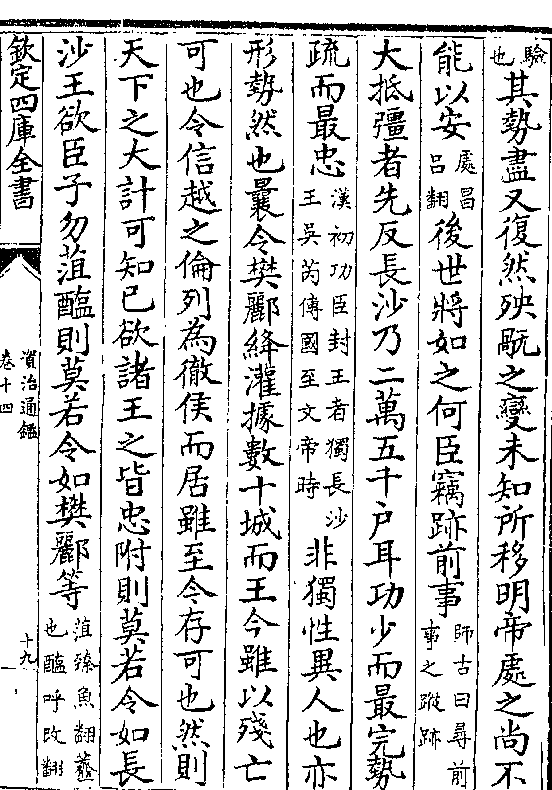 驗也其勢盡又復然殃𥚽之變未知所移明帝處之尚不
能以安處昌呂翻後世將如之何臣竊跡前事師古曰尋前事之蹤跡
大抵彊者先反長沙乃二萬五千户耳功少而最完勢
疏而最忠漢初功臣封王者獨長沙王吳芮傳國至文帝時非獨性異人也亦
形勢然也曩令樊酈絳灌據數十城而王今雖以殘亡
可也令信越之倫列為徹侯而居雖至今存可也然則
天下之大計可知已欲諸王之皆忠附則莫若令如長
沙王欲臣子勿菹醢則莫若令如樊酈等菹臻魚翻虀也醢呼改翻
欽定四庫全書
資治通鑑
卷十四
十九